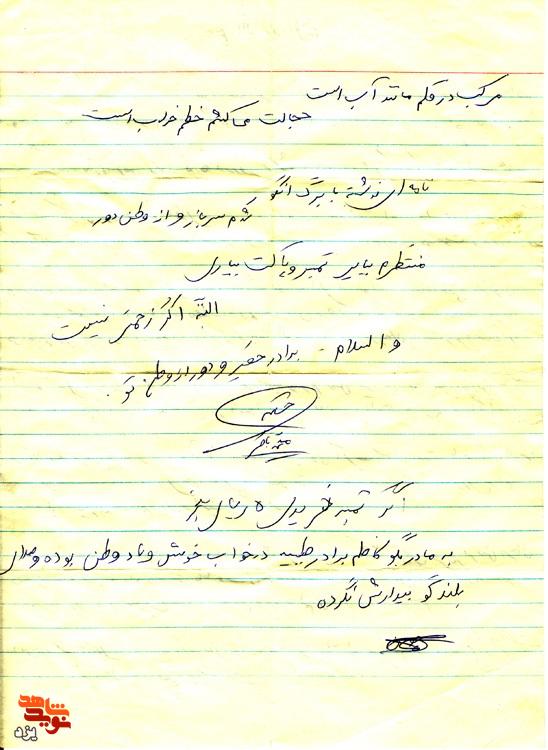 مرکب در قلم مانند آب است
خجالت میکشم خطم خراب است
نامه ای نوشته با برگ انگور
شدم سرباز و از وطن دور
منتظرم بیایی تمبر و پاکت بیاری
البته اگر زحمتی نیست
والسلام - برادر حقیر و دور از وطن تو.
اگر تمبر خریدی ۵ ریالی بخر
به مادر بگو کاظم برادر طیبه در خواب خوش و یاد وطن بوده و صدای
بلندگو بیدارش نکرده
نوید شاهد
یزد